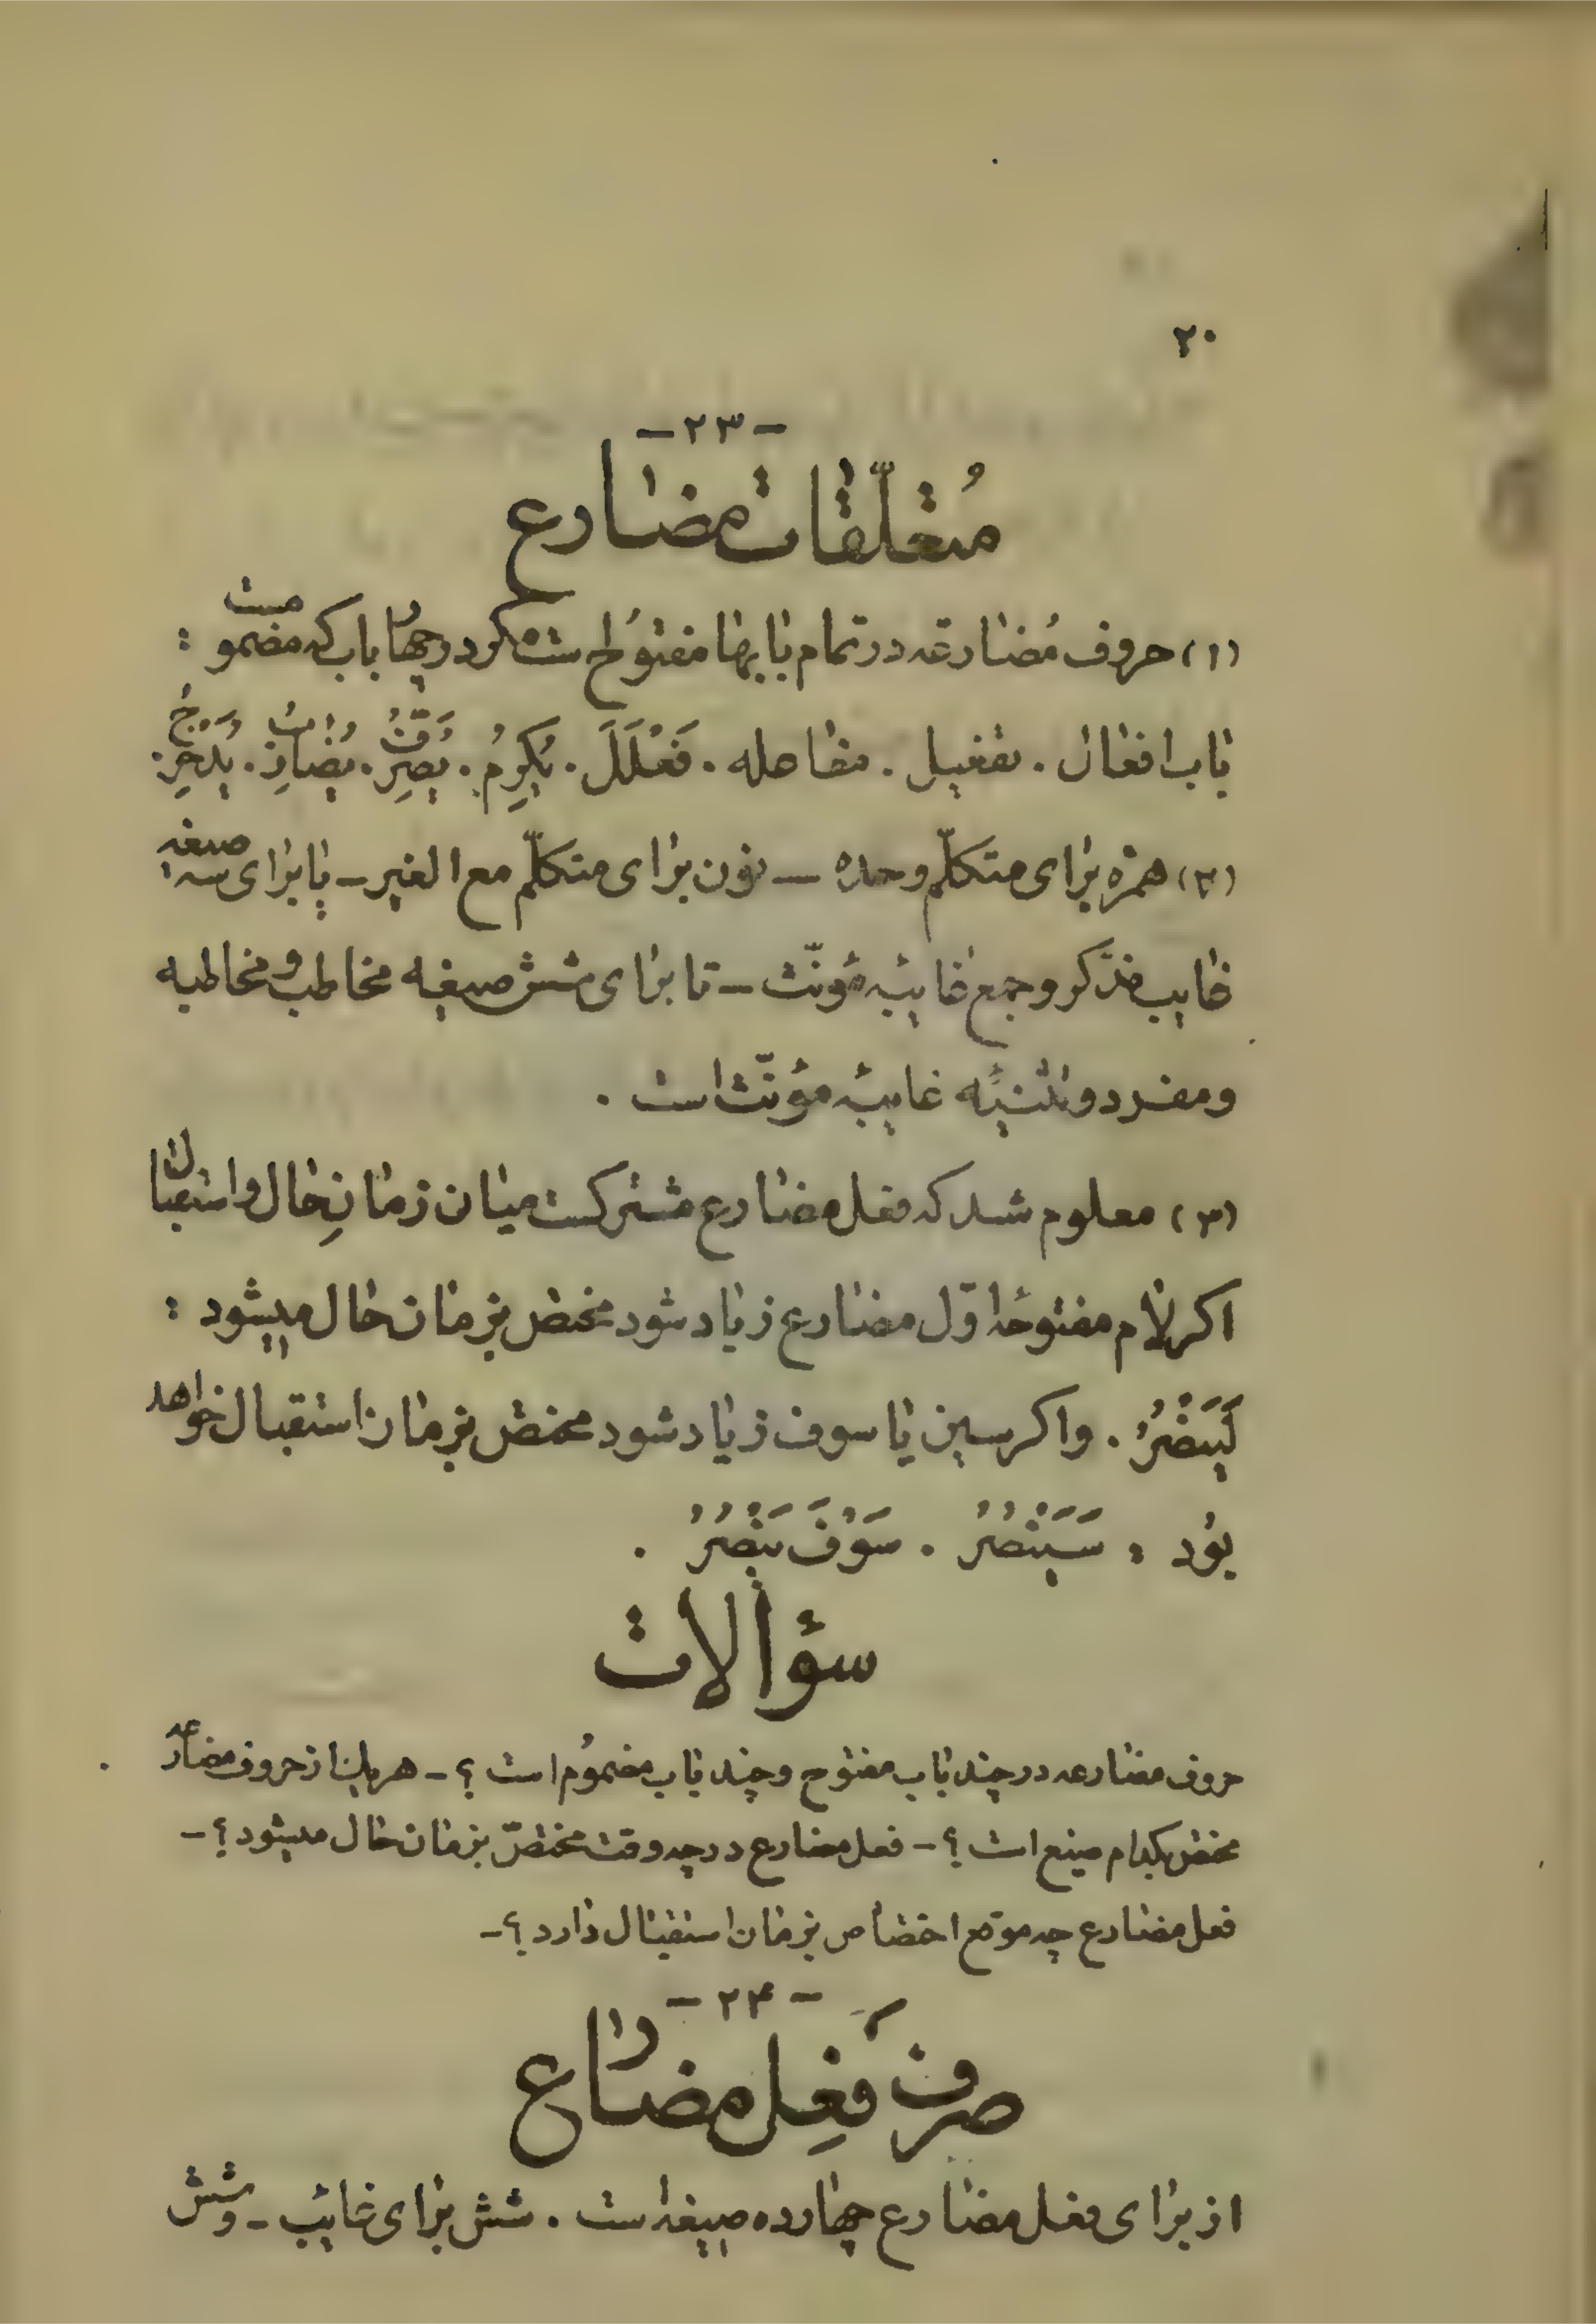 ۲۰
- ۲۳ -
مُتعلّقات مضارع
(۱) حروف مُضارعه در تمام بابها مفتوُح است مگر در چهار باب که مضموم است :
باب افعال . تفعیل . مفاعله . فَعْلَلَ . یُکرِمُ . یُصَرِّفُ . یُضارِبُ . یُدَحْرِجُ .
(۲) همزه برای متکلّم وحده — نون برای متکلّم مع الغیر — یا برای سه صیغه
غایب مذکّر و جمع غایبهٔ مؤنّث — تا برای شش صیغه مخاطب و مخاطبه
و مفرد و تثنیهٔ غایبهٔ مؤنّث است .
(۳) معلوم شد که فعل مضارع مشترکست میان زمانِ حال و استقبال
اکر لام مفتوحه اوّل مضارع زیاد شود مختص بزمان حال میشود :
لَیَنْصُرُ . و اکر سین یا سوف زیاد شود مختص بزمان استقبال خواهد
بوُد : سَیَنْصُرُ . سَوْفَ یَنْصُرُ .
سؤالات
حروف مضارعه در چند باب مفتوح و چند باب مضموُم است ؟ - هر یک از حروف مضارعه
مختص بکدام صیغ است ؟ - فعل مضارع در چه وقت مختصّ بزمان حال میشود ؟ -
فعل مضارع چه موقع اختصاص بزمان استقبال دارد ؟ -
- ۲۴ -
صرف فعِل مضارع
از برای فعل مضارع چهارده صیغه است . شش برای غایب - و شش